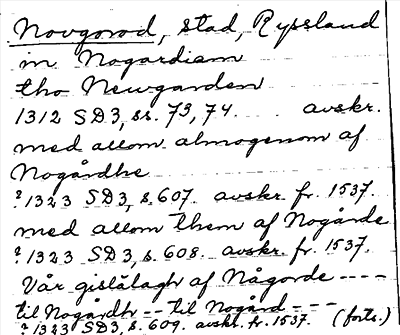 Novgorod, stad, Ryssland
in Nogardiam
tho Newgarden
1312 SD3, ss. 73, 74. avskr.
med allom almogenom af
Nogårdhe
?1323 SD3, s. 607. avskr. fr. 1537.
med allom them af Nogårde
?1323 SD3, s. 608. avskr. fr. 1537.
Vår gislålagh af Någorde ----
til Nogårdh -- til Nogård ---
?1323 SD3, s. 609. avskr. fr. 1537. (forts.)